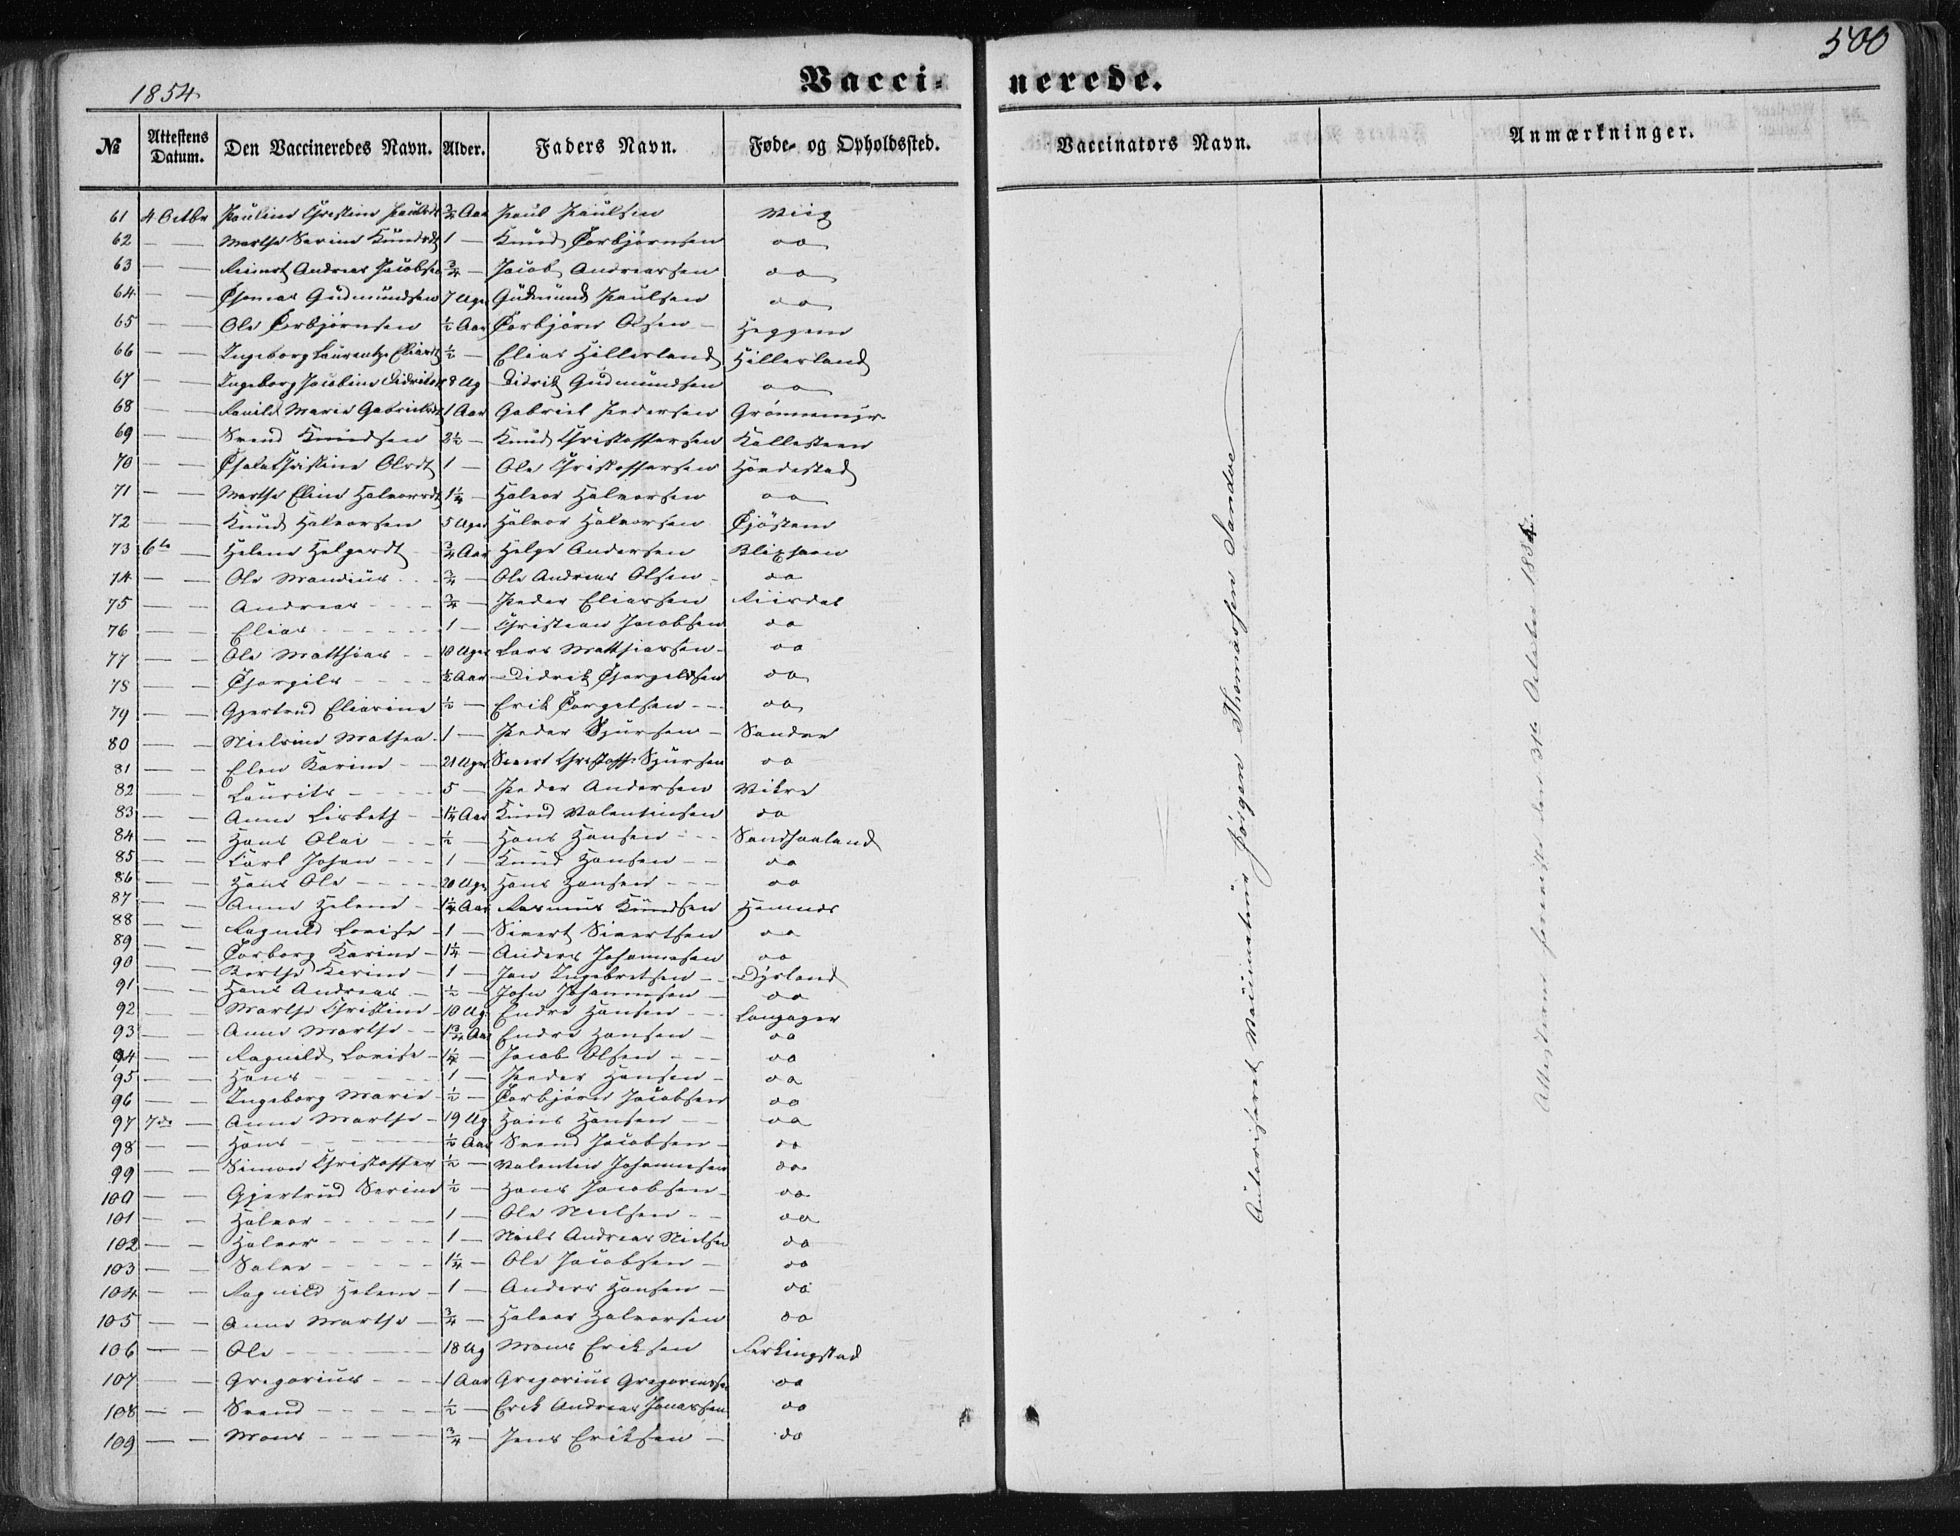 500
1854.
Vacci- nerede.
№ Attestens Datum. Den Vaccineredes Navn. Alder. Faders Navn. Føde- og Opholdssted. Vaccinators Navn. Anmærkninger.
61 4 Octbr Pauline Christine Paulsdt ¾ Aar Paul Paulsen Wiig
62 — — Marthe Serine Knudsdt 1 — Knud Torbjørnsen do
63 — — Reinert Andreas Jacobsen ¾ — Jacob Andreassen do
64 — — Thomas Gudmundsen 7 Uger Gudmund Paulsen do
65 — — Ole Torbjørnsen ½ Aar Torbjørn Olsen — Heggem
66 — — Ingeborg Laurentze Eliasdt ½ — Elias Hillesland Hillesland
67 — — Ingeborg Jacobine Didriksdt 8 Ug Didrik Gudmundsen do
68 — — Marie Gabrielsdt 1 Aar Gabriel Pedersen Grønnemyr
69 — — Svend Knudsen 2½ — Knud Christoffersen Kallesteen
70 — — Christine Olsdt 1 — Ole Christoffersen Haavdestad
71 — — Marthe Eline Halvorsdt 1¼ — Halvor Halvorsen do
72 — — Knud Halvorsen 5 Uger Halvor Halvorsen Tjøstem
73 6te — Helene Helgesdt ¾ Aar Helge Andersen
74 — — Ole Mandius ¾ — Ole Andreas Olsen — do
75 — — Andreas ¾ — Peder Eliassen Riisdal
76 — — Elias 1 — Christian Jacobsen do
77 — — Ole Matthias 10 Uger Lars Matthiassen — do
78 — — Thorgils ½ Aar Didrik Thorgilssen do
79 — — Gjertrud Eliasine ½ — Erik Torgelsen — do
80 — — Nielsine Mathea 1 — Peder Sjursen — Sandve
81 — — Elen Karine 21 Uger Sivert Christoff. Sjursen do
82 — — Laurits 5 — Peder Andersen Wikre
83 — — Anne Lisbeth 1¼ Aar Knud Valentinsen do
84 — — Hans Olai ½ — Hans Hansen Sandhaaland
85 — — Carl Johan 1 — Knud Hansen do
86 — — Hans Ole 20 Uger Hans Hansen do
87 — — Anne Helene 1¼ Aar Rasmus Knudsen Hemnes
88 — — Ragnild Lovise 1 — Sivert Sivertsen do
89 — — Torborg Karine 1¼ — Anders Johannesen do
90 — — Berthe Karine 1 — Jan Ingebretsen Dyrland
91 — — Hans Andreas ½ — John Johannesen do
92 — — Marthe Christine 10 Ug. Endre Hansen Langager
93 — — Anne Marthe 1¾ Aar Endre Hansen do
94 — — Ragnild Lovise 1¼ — Jacob Olsen do
95 — — Hans 1 — Peder Hansen do
96 — — Ingeborg Marie ½ — Torbjørn Jacobsen do
97 7de — Anne Marthe 19 Ug Hans Hansen do
98 — — Hans ½ Aar Svend Jacobsen do
99 — — Simon Christoffer ½ — Valentin Johannesen do
100 — — Gjertrud Serine ½ — Hans Jacobsen do
101 — — Halvor 1 — Ole Nielsen do
102 — — Halvor 1 — Niels Andreas Nielsen do
103 — — Salve 1¼ — Ole Jacobsen do
104 — — Ragnild Helene 1 — Anders Hansen do
105 — — Anne Marthe ¾ — Halvor Halvorsen do
106 — — Ole 18 Ug Mons Eriksen Ferkingstad
107 — — Gregorius 1 Aar Gregorius Gregoriussen do
108 — — Svend ½ — Erik Andreas Jonassen do
109 — — Mons ¾ — Jens Eriksen do
Autoriseret Vaccinateur Jørgen Thomassen Sandve
Attesterne fremviste den 31te October 1854.